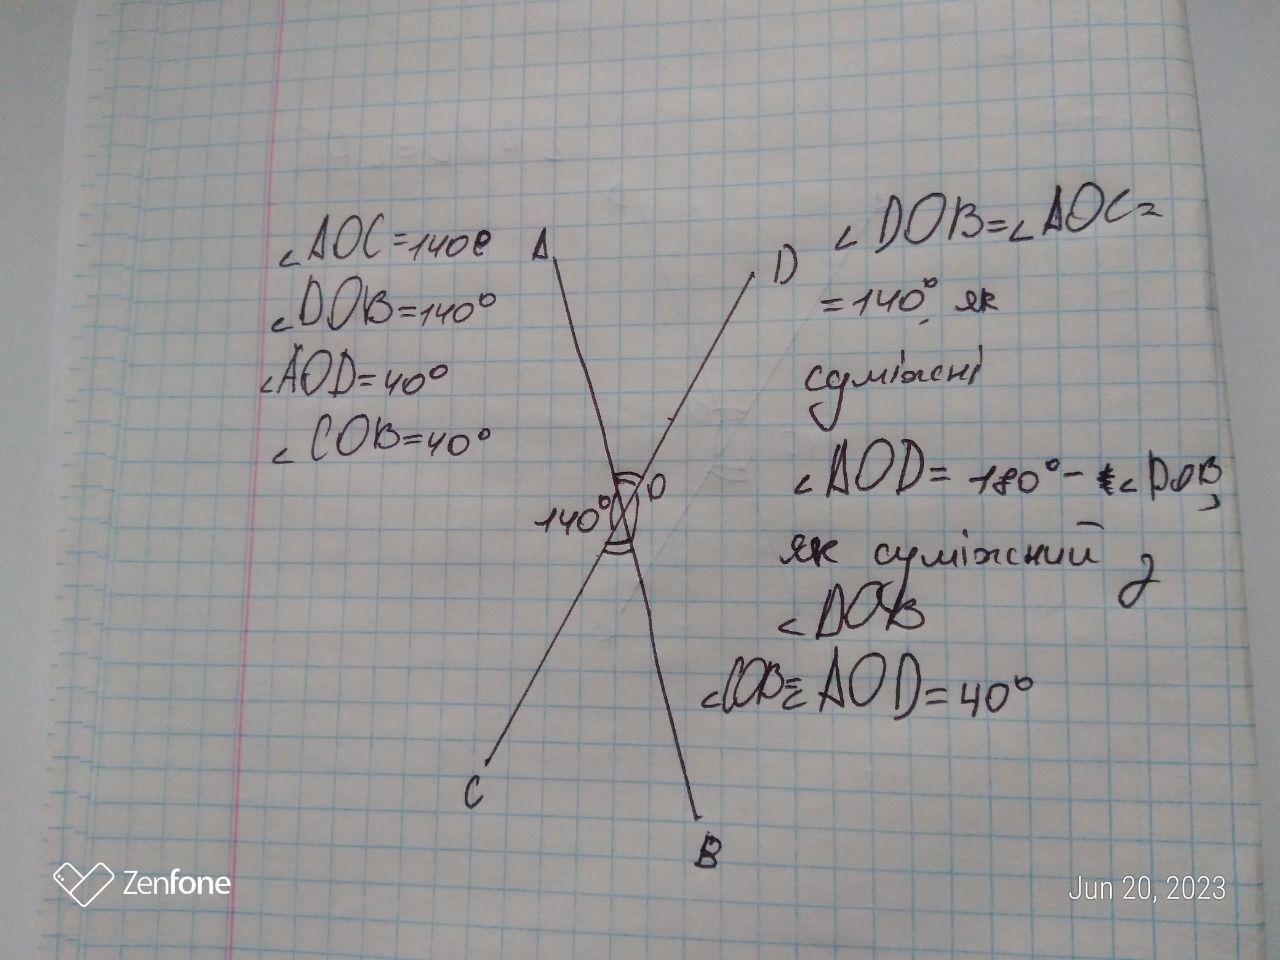 ∠AOC=140°
∠DOB=140°
∠AOD=40°
∠COB=40°
A
D
O
140°
C
B
∠DOB=∠AOC=
=140°, як
суміжні
∠AOD=180°-∠DOB,
як суміжний з
∠DOB
∠COB=∠AOD=40°
Zenfone
Jun 20, 2023